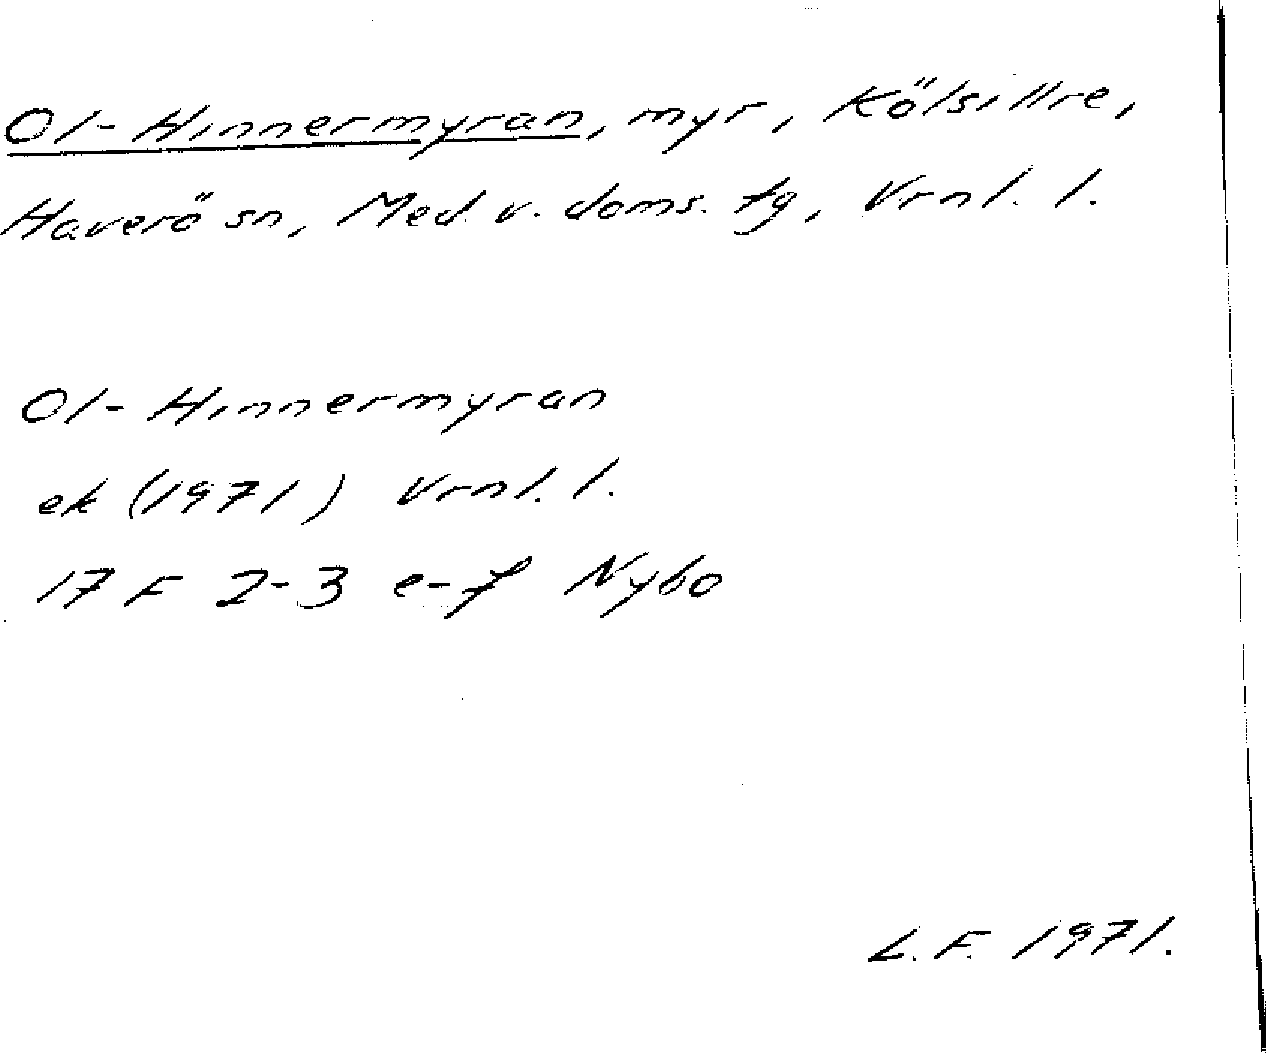 Ol-Hinnermyran, myr, Kölsillre,
Haverö sn, Med. v. doms. tg, Vrnl. l.
Ol-Hinnermyran
ek (1971) Vrnl. l.
17 F 2-3 e-f Nybo
L.F. 1971.